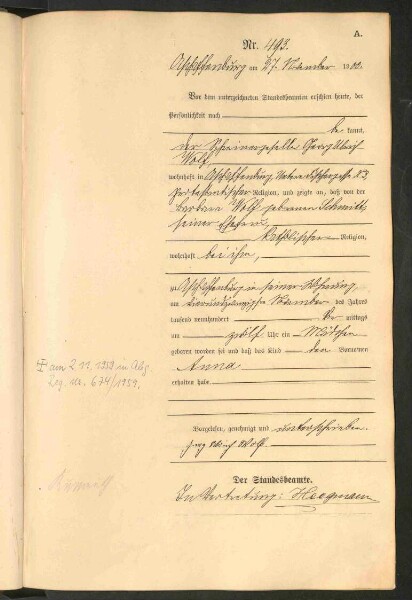 A.
Nr. 493.
Aschaffenburg am 27. November 1902.
Vor dem unterzeichneten Standesbeamten erschien heute, der
Persönlichkeit nach
be kannt,
der Schreinergeselle Georg Ulrich
Wolf,
wohnhaft in Aschaffenburg,
protestantischer Religion, und zeigte an, daß von der
Barbara Wolf geborenen Schmitt,
seiner Ehefrau,
katholischer Religion,
wohnhaft bei ihm,
zu Aschaffenburg in seiner Wohnung,
am November des Jahres
tausend neunhundert Vor mittags
um zwölf Uhr ein Mädchen
geboren worden sei und daß das Kind den Vornamen
Anna
erhalten habe
Vorgelesen, genehmigt und unterschrieben.
Georg Ulrich Wolf.
Der Standesbeamte.
In Vertretung: Hegmann
am 2.11.1959 in Abg.
Reg. Nr. 674/1959.